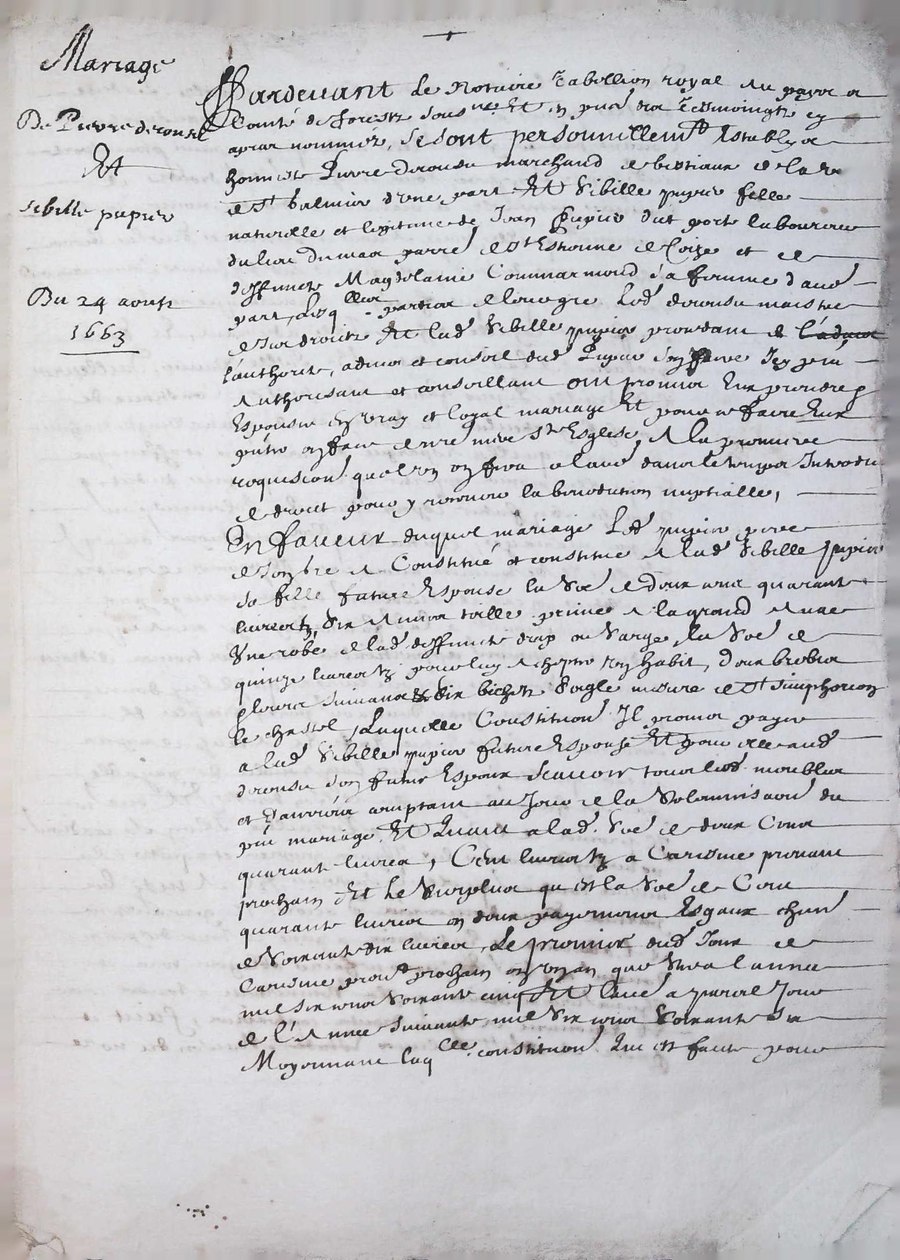 Mariage
De Pierre derousu
Et
sibille pupier
Du 24 aoust
1663
Pardevant le Notaire Tabellion royal au payis et
Comté de forestz soubsne Et en pnce des Tesmoingtz cy
apres nommez, se sont personnellemt Establys
honneste Pierre derousu marchand de bestiaux de la
de St Galmier d'une part Et Sibille pupier fille
naturelle et legitime de Jean Pupier dit laboureur
du lieu du mas parre de St Estienne de Coize et de
deffuncte Magdelaine Commarmond sa femme d'autre
part, Lesqlles parties led derousu maistre
de ses droictz Et lad Sibille pupier procedant de
l'authorité, advis et conseil dud Pupier son pere Icy pnt
Authorisant et conseillant ont promis Eux prendre p
Espoux en vray et loyal mariage Et pour ce faire Eux
pnter en face de nre mere Ste Esglise, A la premiere
requisicion que l'un en fera a l'autre dans le temps Introduit
de droict pour y recevoir la benediction nuptialle,
En faveur duquel mariage Led pupier pere
de son bre A Constitué et constitue A lad Sibille pupier
sa fille future Espouse la soe de deux cens quarante
livres tz six toille prime A la grand Aune
Une robe de lad deffuncte drap ou sarge, la soe de
quinze livres tz pour luy Achepter son habit, deux brebis
suivans & six bichetz seigle mesure de St Simphorien
le chastel, Laquelle Constitution Il promet payer
a lad Sibille pupier future Espouse Et pour elle aud
derousu son futur Espoux scavoir tous lesd meubles
et comptant au Jour de la Solemnisaon du
pnt mariage, Et Quant a lad. Soe de deux Cens
quarante livres, Cent livres tz a Caresme prenant
prochain Et Le Surplus qui est la Soe de Cent
quarante livres en deux payemens Esgaux chun
de Soixante dix livres, Le premier dud Jour de
Caresme prent prochain en un an que sera l'annee
mil six cens soixante cinq Et l'autre a pareil Jour
de l'Annee suivante mil six cens soixante six
Moyennant laqlle constitution Qui est faite pour